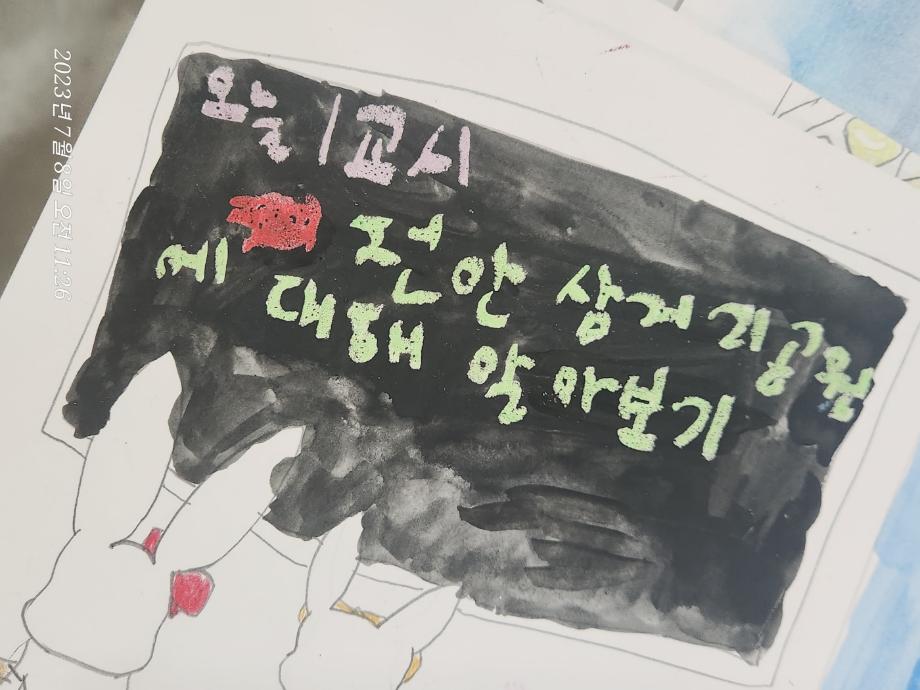 2023년 7월 8일 오전 11:26
오늘 1교시
천안 삼거리공원
에 대해 알아보기